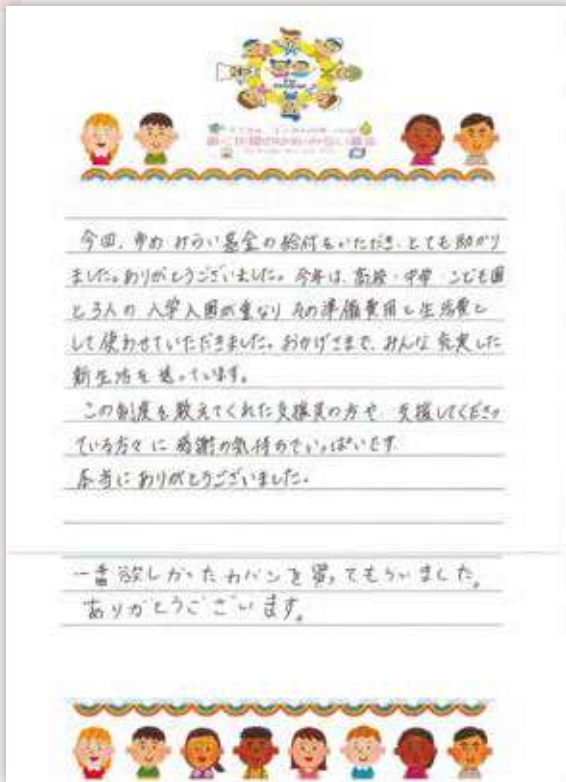 今回、ゆめ みらい基金の給付をいただき、とても助かり
ました。ありがとうございました。今年は、高校・中学・こども園
と3人の 入学入園が重なり その準備費用と生活費と
して使わせていただきました。おかげさまで、みんな充実した
新生活を送っています。
この制度を教えてくれた支援員の方や、支援してくださっ
ている方々に 感謝の気持ちでいっぱいです
本当にありがとうございました。
一番欲しかったカバンを買ってもらいました。
ありがとうございます。